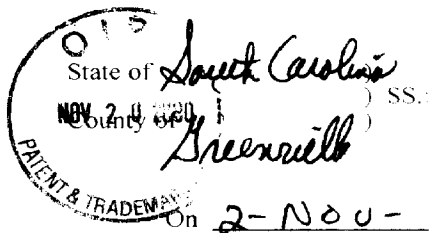 OIP
State of South Carolina
) SS.:
NOV 2 0
County of )
Greenville
PATENT & TRADEMARK
On 2-NOV-